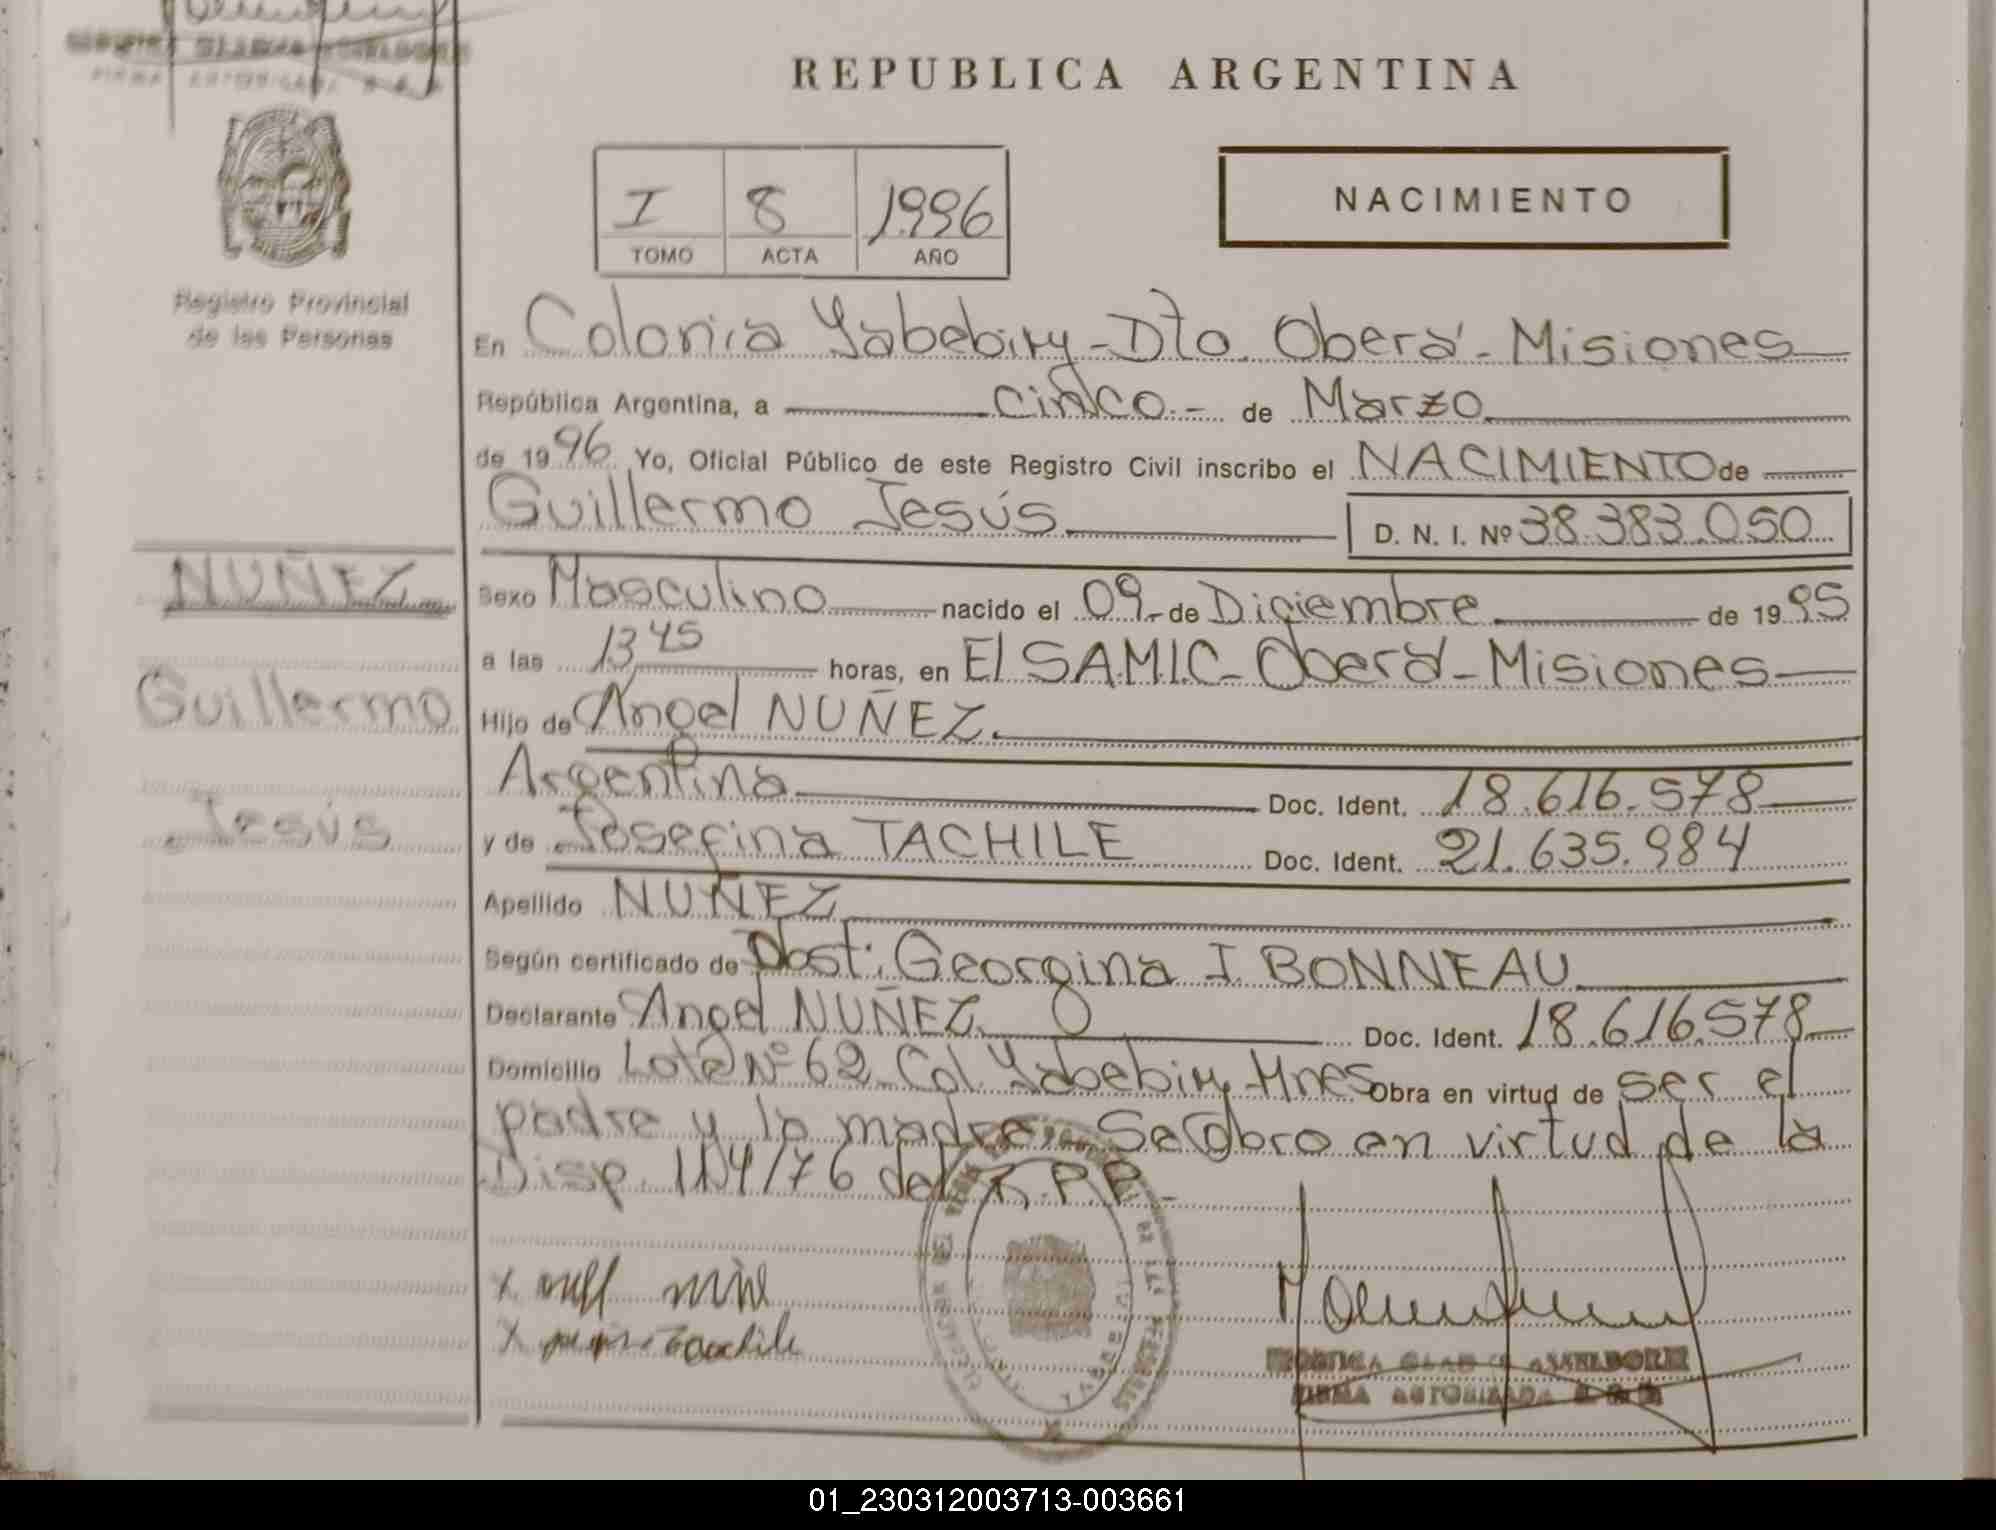 REPUBLICA ARGENTINA
I 8 1996
TOMO ACTA AÑO
NACIMIENTO
Registro Provincial
de las Personas
En Colonia Yabebiry - Dto. Oberá - Misiones
República Argentina, a cinco.- de Marzo
de 1996 Yo, Oficial Público de este Registro Civil inscribo el NACIMIENTO de
Guillermo Jesús D. N. I. Nº 38.383.050
NUÑEZ
Guillermo
Jesús
Sexo Masculino nacido el 09- de Diciembre de 1995
a las 13,45 horas, en El SAMIC- Oberá - Misiones
Hijo de Angel NUÑEZ.
Argentina Doc. Ident. 18.616.578
y de Josefina TACHILE Doc. Ident. 21.635.984
Apellido NUÑEZ
Según certificado de Obst: Georgina I BONNEAU
Declarante Angel NUÑEZ Doc. Ident. 18.616.578
Domicilio Lote Nº 62 Col. Yabebiry Mnes Obra en virtud de ser el
padre y la madre. Se obro en virtud de la
Disp. 114/76 del R.P.P.-
FIRMA AUTORIZADA
01_230312003713-003661